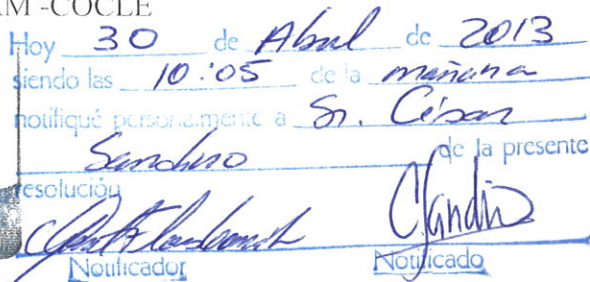 M -COCLE
Hoy 30 de Abril de 2013
siendo las 10:05 de la mañana
notifiqué personalmente a Sr. César
Sandino de la presente
resolución
Notificador Notificado